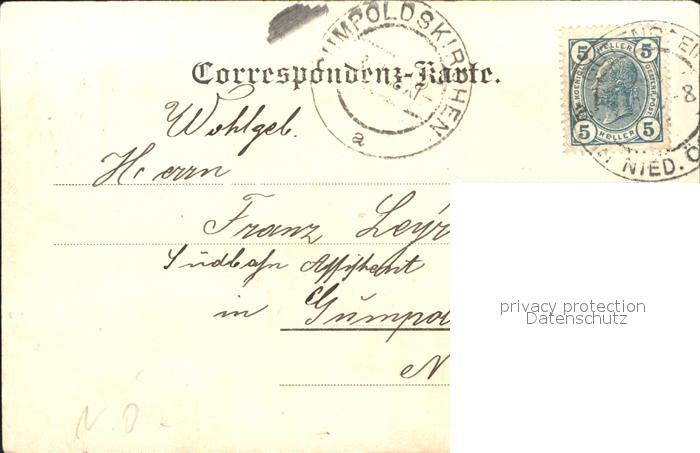 UMPOLDSKIRCHEN
a
5 HELLER 5
5 HELLER 5
NIED. Ö
8
Correspondenz-Karte.
Wohlgeb.
Herrn
Franz Leyr
Südbahn Assistent
in Gumpo
N
N. Ö.
privacy protection
Datenschutz